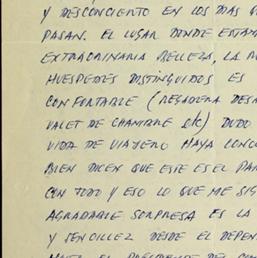 Y DESCONCIERTO EN LOS MAS
PASAN. EL LUGAR DONDE ESTAM
EXTRAORDINARIA BELLEZA, LA
HUESPEDES DISTINGUIDOS ES
CONFORTABLE (REGADERA
VALET DE CHAMBRE ETC) DUDO
VIDA DE VIAJERO HAYA
BIEN DICEN QUE ESTE ES EL PAR
CON TODO Y ESO LO QUE ME
AGRADABLE SORPRESA ES LA
Y SENCILLEZ DESDE EL DEPEN
EL PRESIDENTE DEL